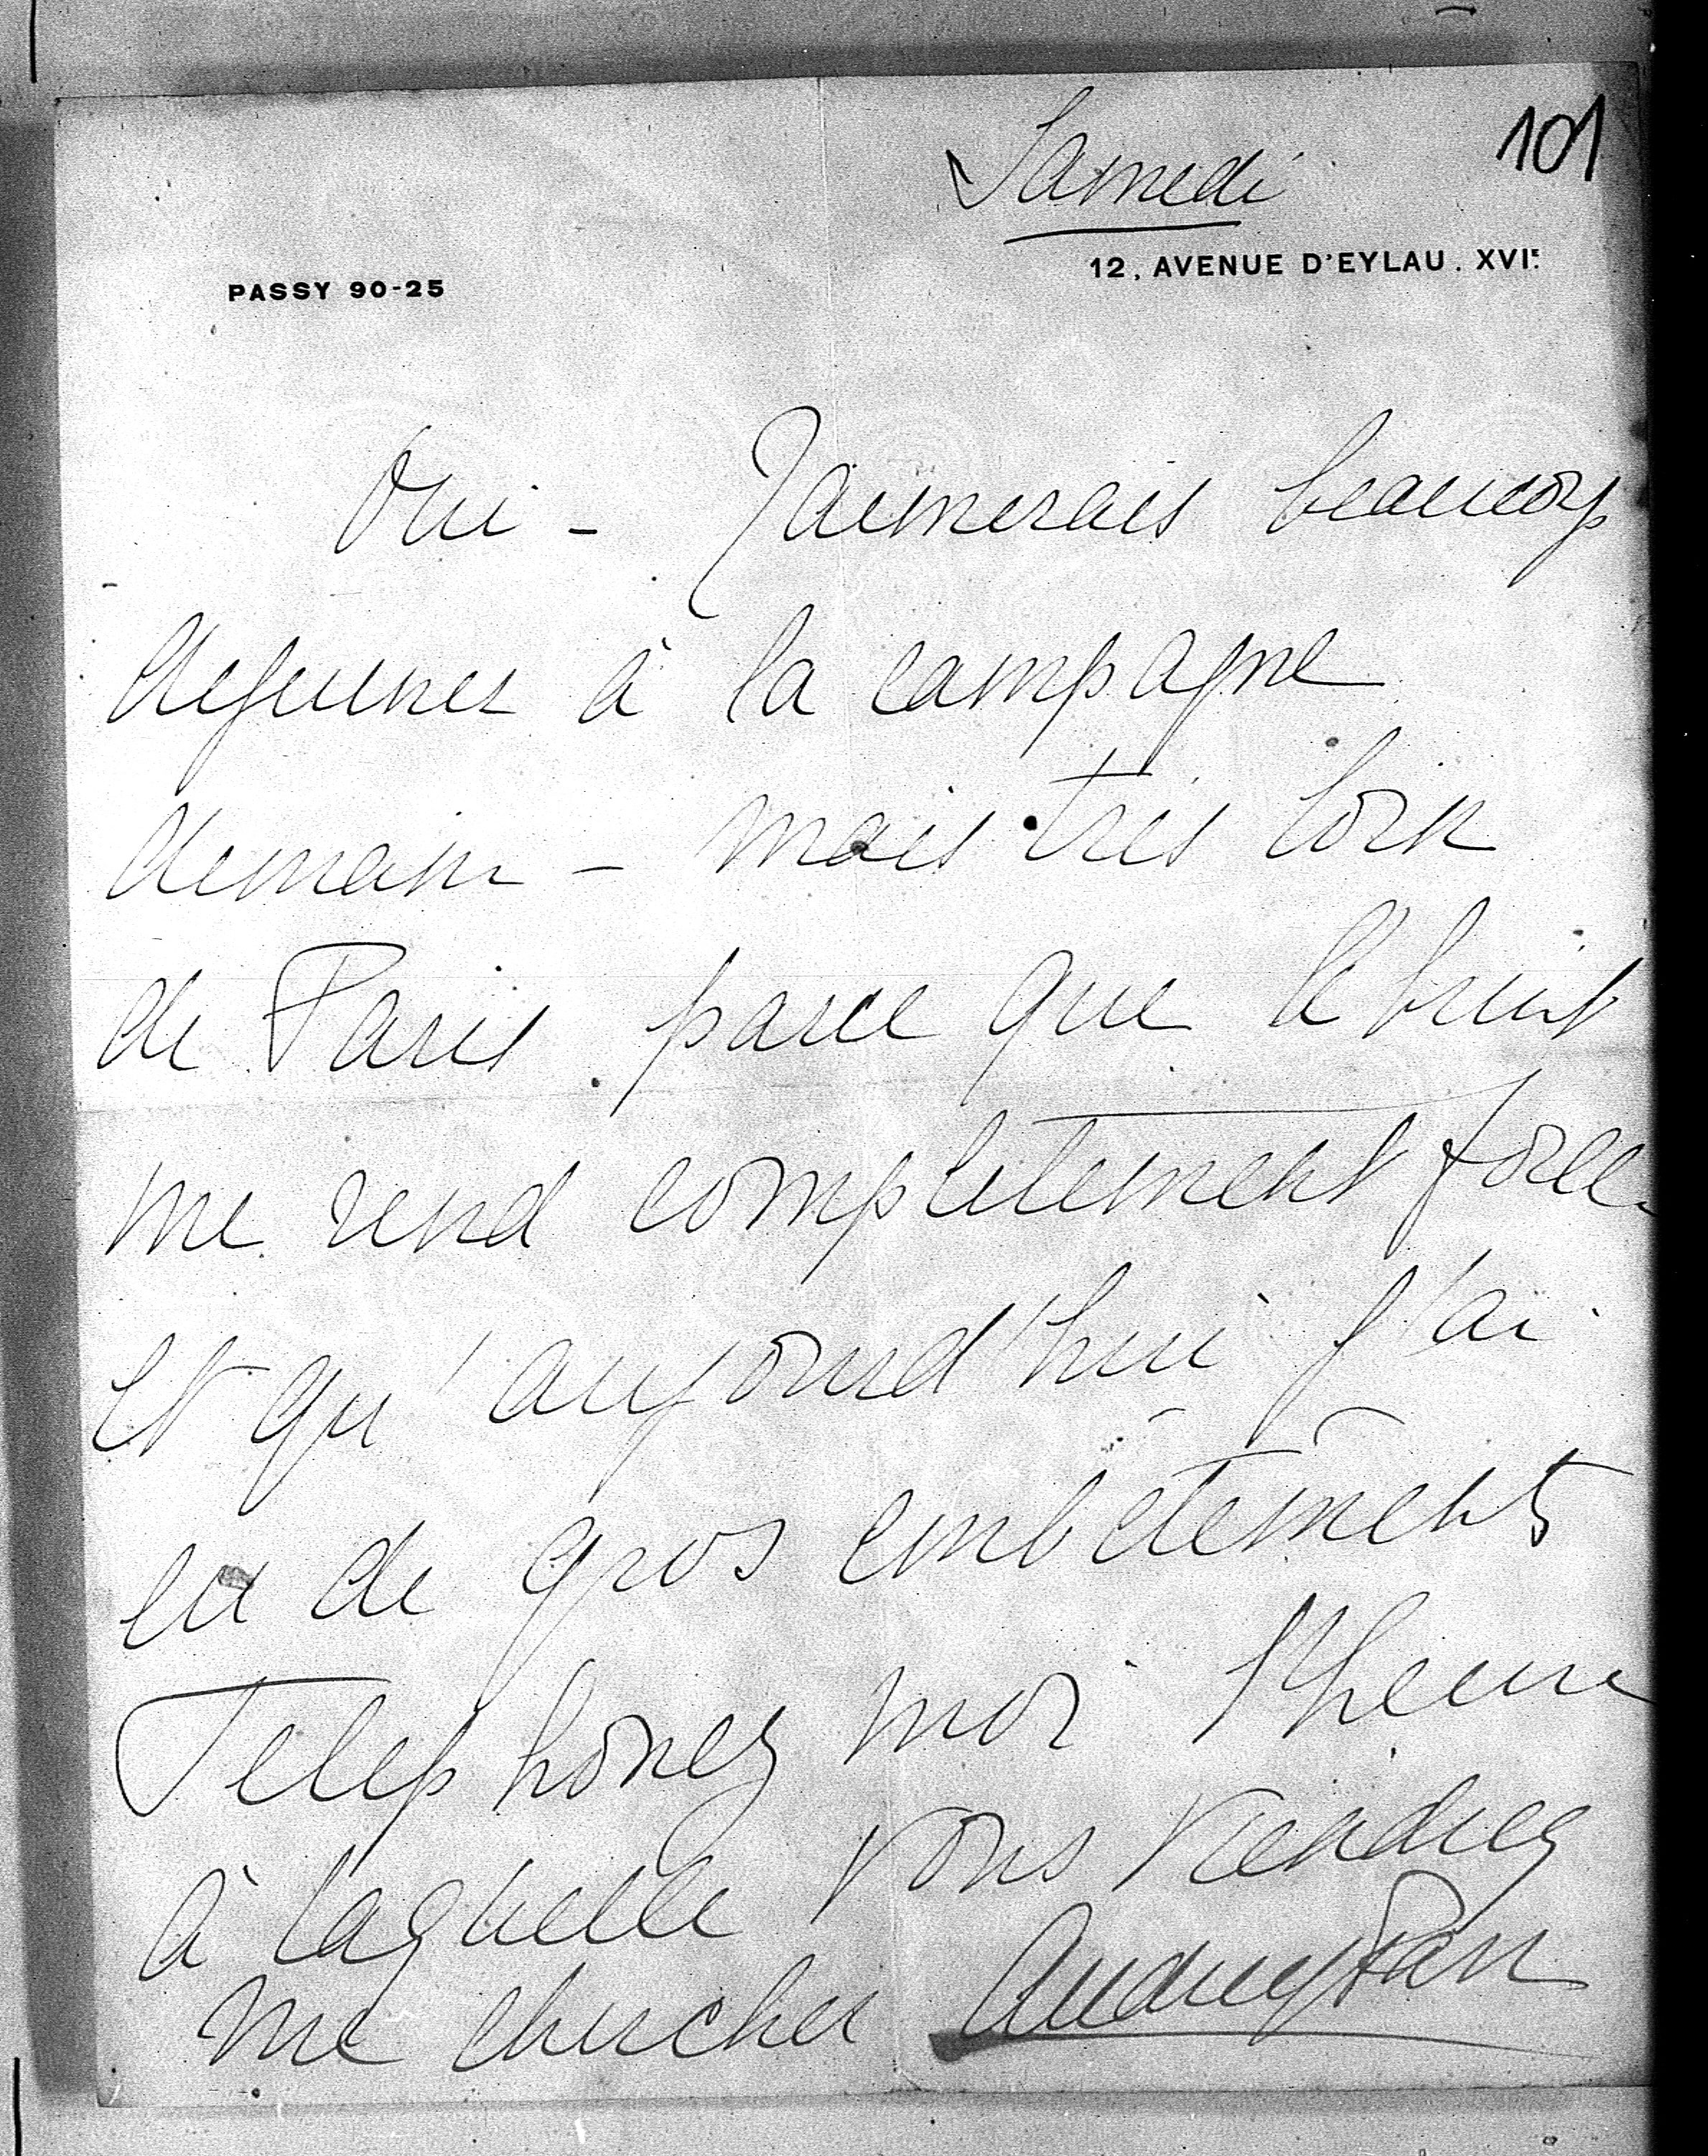 101
Samedi
12, AVENUE D'EYLAU. XVIE
PASSY 90-25
Oui - J'aimerais beaucoup
dejeuner à la campagne
demain - mais très loin
de Paris parce que le bruit
me rend completement folle
et qu'aujourd'hui j'ai
eu de gros embêtements
Telephonez moi l'heure
à laquelle vous viendrez
me chercher Audrey Parr